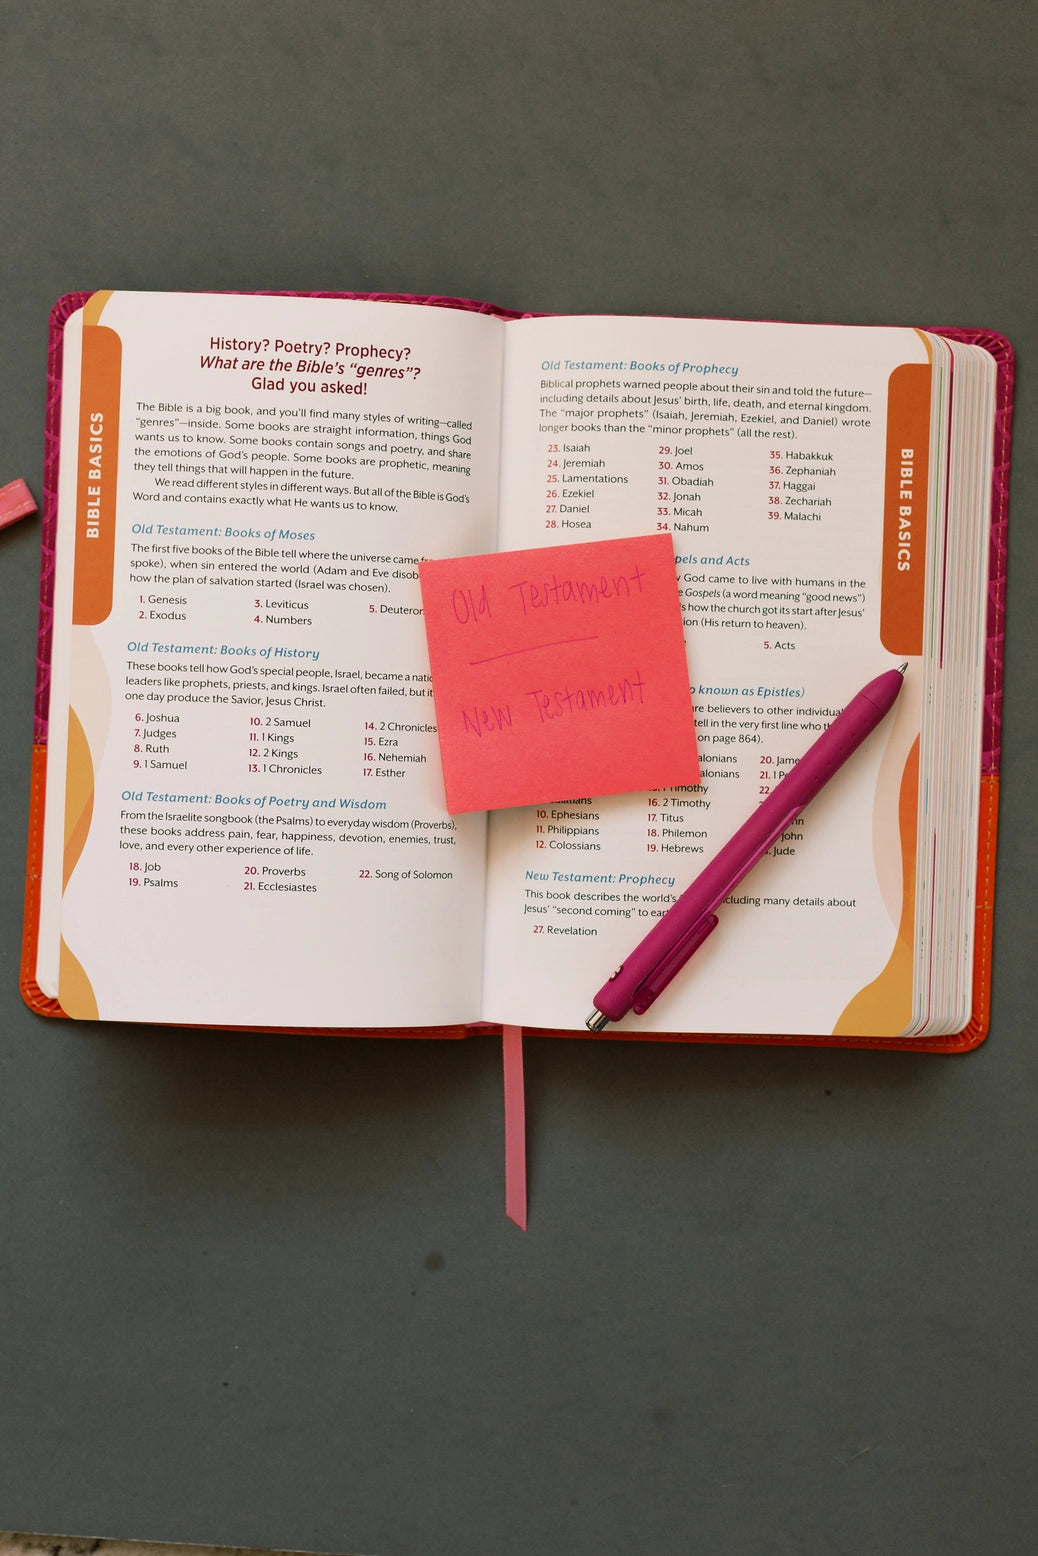 BIBLE BASICS
History? Poetry? Prophecy?
What are the Bible's "genres"?
Glad you asked!
The Bible is a big book, and you'll find many styles of writing—called
"genres"—inside. Some books are straight information, things God
wants us to know. Some books contain songs and poetry, and share
the emotions of God's people. Some books are prophetic, meaning
they tell things that will happen in the future.
We read different styles in different ways. But all of the Bible is God's
Word and contains exactly what He wants us to know.
Old Testament: Books of Moses
The first five books of the Bible tell where the universe came
spoke), when sin entered the world (Adam and Eve
how the plan of salvation started (Israel was chosen).
1. Genesis 3. Leviticus 5.
2. Exodus 4. Numbers
Old Testament: Books of History
These books tell how God's special people, Israel, became a
leaders like prophets, priests, and kings. Israel often failed, but it
one day produce the Savior, Jesus Christ.
6. Joshua 10. 2 Samuel 14. 2 Chronicles
7. Judges 11. 1 Kings 15. Ezra
8. Ruth 12. 2 Kings 16. Nehemiah
9. 1 Samuel 13. 1 Chronicles 17. Esther
Old Testament: Books of Poetry and Wisdom
From the Israelite songbook (the Psalms) to everyday wisdom (Proverbs),
these books address pain, fear, happiness, devotion, enemies, trust,
love, and every other experience of life.
18. Job 20. Proverbs 22. Song of Solomon
19. Psalms 21. Ecclesiastes
Old Testament
New Testament
Old Testament: Books of Prophecy
Biblical prophets warned people about their sin and told the future—
including details about Jesus' birth, life, death, and eternal kingdom.
The "major prophets" (Isaiah, Jeremiah, Ezekiel, and Daniel) wrote
longer books than the "minor prophets" (all the rest).
23. Isaiah 29. Joel 35. Habakkuk
24. Jeremiah 30. Amos 36. Zephaniah
25. Lamentations 31. Obadiah 37. Haggai
26. Ezekiel 32. Jonah 38. Zechariah
27. Daniel 33. Micah 39. Malachi
28. Hosea 34. Nahum
and Acts
God came to live with humans in the
Gospels (a word meaning "good news")
how the church got its start after Jesus'
(His return to heaven).
5. Acts
known as Epistles)
believers to other
tell in the very first line who
on page 864).
20.
21. 1
Timothy 22.
10. Ephesians 16. 2 Timothy
11. Philippians 17. Titus
12. Colossians 18. Philemon John
19. Hebrews Jude
New Testament: Prophecy
This book describes the world's including many details about
Jesus' "second coming" to
27. Revelation
BIBLE BASICS